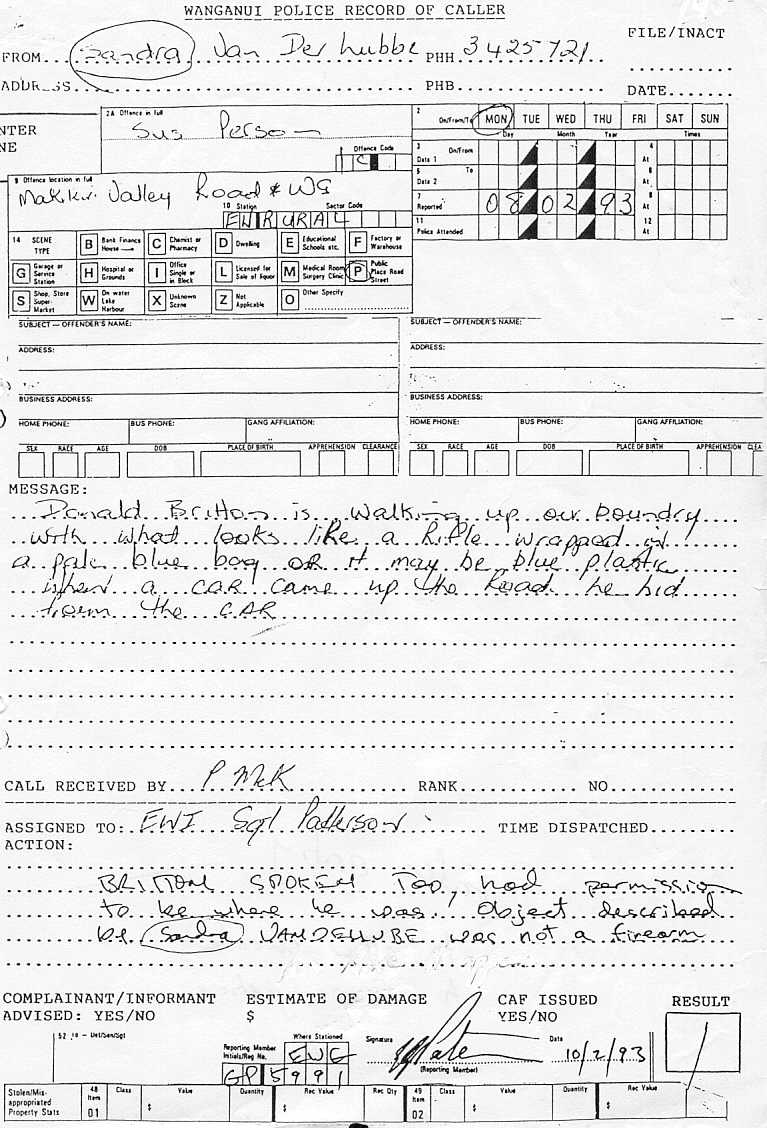 WANGANUI POLICE RECORD OF CALLER
FILE/INACT
FROM Sandra Van Der Lubbe PHH 3425721
ADDRESS PHB DATE
2A Offence in full
Sus Person
Offence Code
C
2 On/From/To MON TUE WED THU FRI SAT SUN
Day Month Year Times
3 On/From Date 1 4 At
5 To Date 2 6 At
7 Reported 08 02 93 8 At
11 Police Attended 12 At
9 Offence location in full
Valley Road & WG
10 Station Sector Code
RURAL
14 SCENE TYPE
B Bank Finance House
C Chemist or Pharmacy
D Dwelling
E Educational Schools etc.
F Factory or Warehouse
G Garage or Service Station
H Hospital or Grounds
I Office Single or in Block
L Licensed for Sale of liquor
M Medical Room Surgery Clinic
P Public Place Road Street
S Shop, Store Super-Market
W On water Lake Harbour
X Unknown Scene
Z Not Applicable
O Other Specify
SUBJECT — OFFENDER'S NAME: SUBJECT — OFFENDER'S NAME:
ADDRESS: ADDRESS:
BUSINESS ADDRESS: BUSINESS ADDRESS:
HOME PHONE: BUS PHONE: GANG AFFILIATION: HOME PHONE: BUS PHONE: GANG AFFILIATION:
SEX RACE AGE DOB PLACE OF BIRTH APPREHENSION CLEARANCE SEX RACE AGE DOB PLACE OF BIRTH APPREHENSION CLEA
MESSAGE:
Donald Britton is walking up our boundry
with what looks like a Rifle wrapped in
a pale blue bag or it may be blue plastic
when a car came up the Road he hid
from the CAR
CALL RECEIVED BY P McK RANK NO
ASSIGNED TO: EWI Sgt Patterson TIME DISPATCHED
ACTION:
BRITTON SPOKEN Too, had permission
to be where he was, Object described
be Sandra VANDELLUBE was not a firearm
COMPLAINANT/INFORMANT ESTIMATE OF DAMAGE CAF ISSUED RESULT
ADVISED: YES/NO $ YES/NO
Reporting Member Initials/Reg No. Where Stationed Signature Date
GP 5991 (Reporting Member) 10/2/93
Stolen/Mis-appropriated Property Stats 48 Item 01 Class Value $ Quantity Rec Value $ Rec Qty 49 Item 02 Class Value $ Quantity Rec Value $